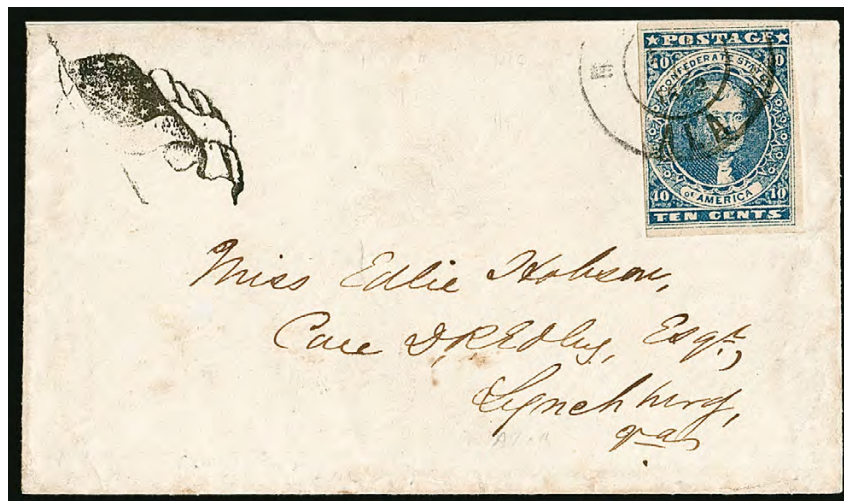 ★ POSTAGE ★
10 10
CONFEDERATE STATES
ALA
OF AMERICA
10 10
TEN CENTS
Miss Edlie Hobson,
Care D.R Edley, Esqr,
Lynchburg,
Va